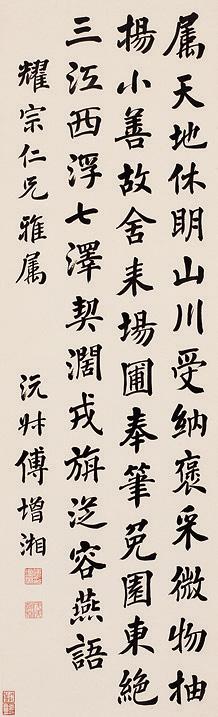 属天地休明山川受納褒采微物抽
揚小善故舍耒場圃奉筆兔園東絶
三江西浮七澤契闊戎旃從容燕語
耀宗仁兄雅属 沅叔傅增湘